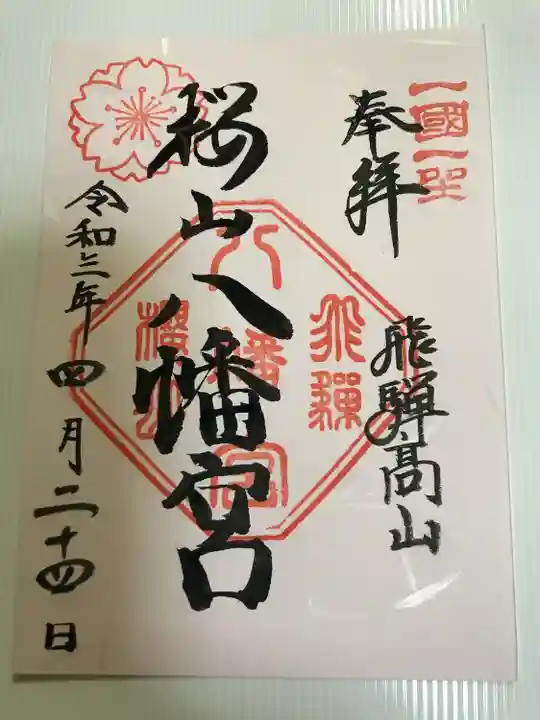 一國一社
奉拝
飛騨髙山
桜山八幡宮
飛騨
八幡宮
櫻山
令和三年四月二十四日